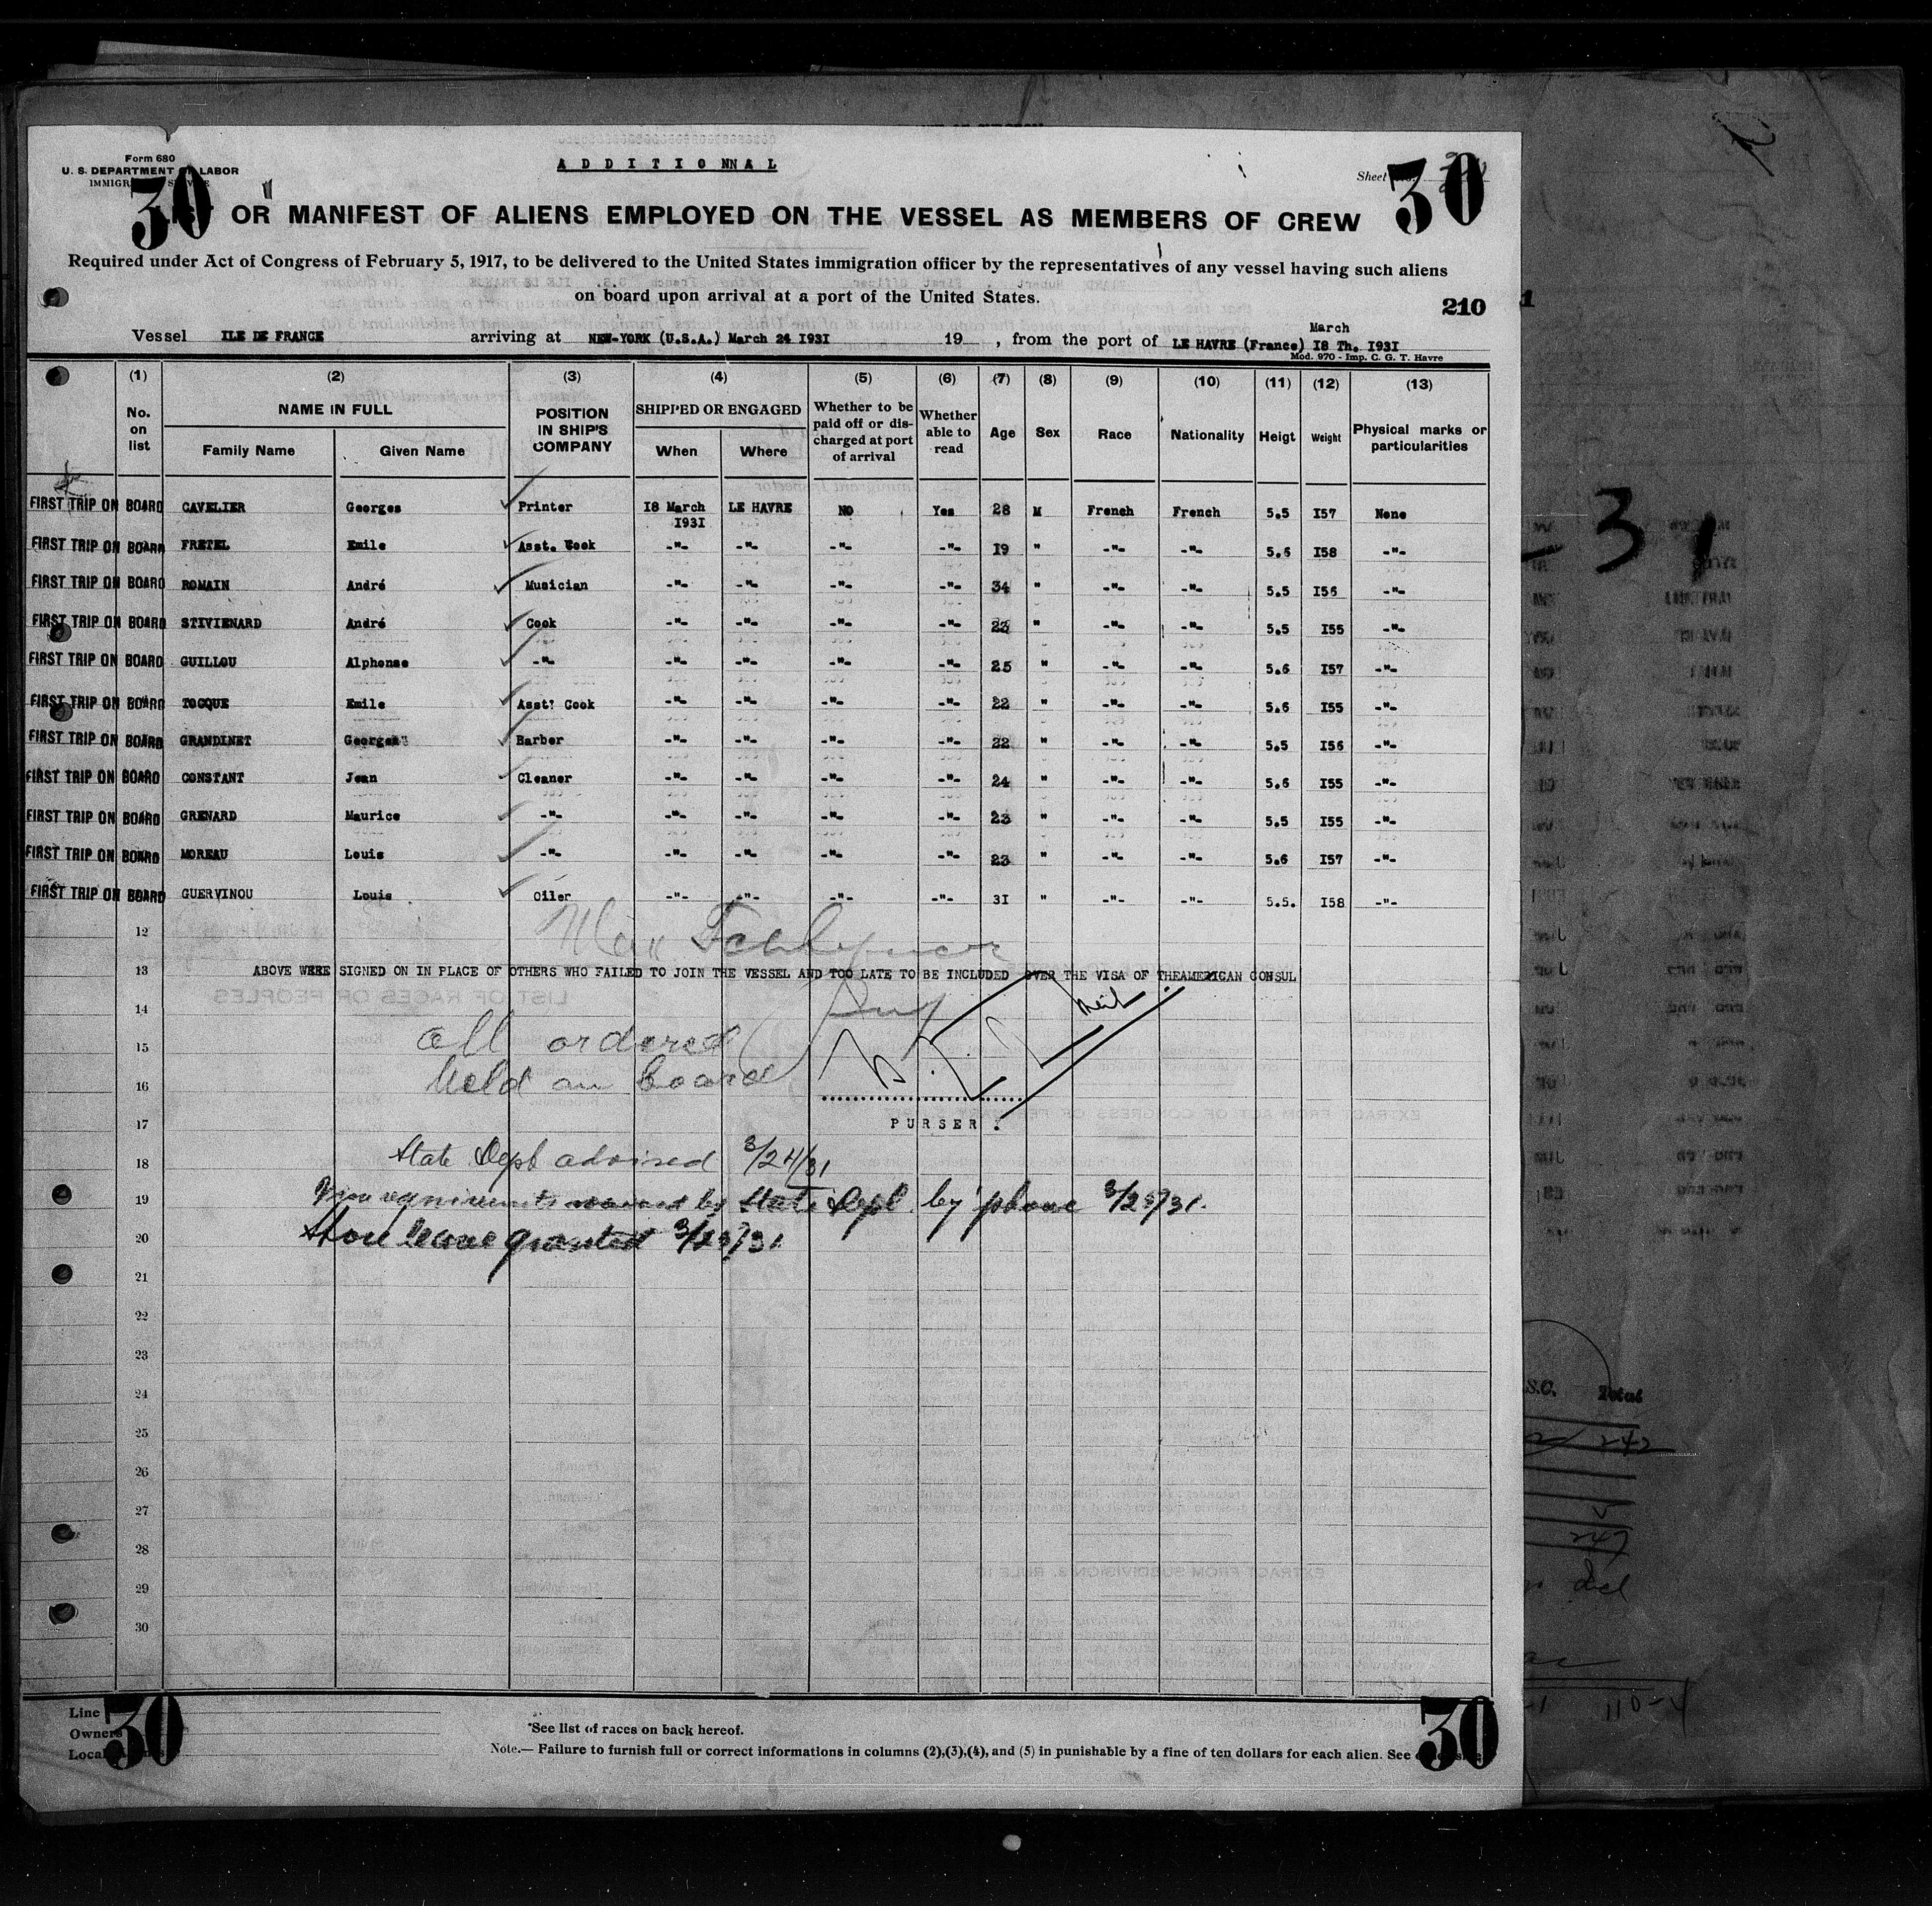 Form 680
U. S. DEPARTMENT OF LABOR
A D D I T I O NN A L
Sheet
30
30
OR MANIFEST OF ALIENS EMPLOYED ON THE VESSEL AS MEMBERS OF CREW
Required under Act of Congress of February 5, 1917, to be delivered to the United States immigration officer by the representatives of any vessel having such aliens
on board upon arrival at a port of the United States.
210
Vessel ILE DE FRANCE arriving at NEW-YORK (U.S.A.) March 24 I93I 19 , from the port of LE HAVRE (France) March I8 Th. I93I
Mod. 970 - Imp. C. G. T. Havre
(1) (2) (3) (4) (5) (6) (7) (8) (9) (10) (11) (12) (13)
No. on list NAME IN FULL Family Name Given Name POSITION IN SHIP'S COMPANY SHIPPED OR ENGAGED When Where Whether to be paid off or discharged at port of arrival Whether able to read Age Sex Race Nationality Heigt Weight Physical marks or particularities
FIRST TRIP ON BOARD CAVELIER Georges Printer I8 March I93I LE HAVRE NO Yes 28 M French French 5.5 I57 None
FIRST TRIP ON BOARD FRETEL Emile Asst. Cook -"- -"- -"- -"- I9 " -"- -"- 5.6 I58 -"-
FIRST TRIP ON BOARD ROMAIN André Musician -"- -"- -"- -"- 34 " -"- -"- 5.5 I56 -"-
FIRST TRIP ON BOARD STIVIENARD André Cook -"- -"- -"- -"- 23 " -"- -"- 5.5 I55 -"-
FIRST TRIP ON BOARD GUILLOU Alphonse -"- -"- -"- -"- -"- 25 " -"- -"- 5.6 I57 -"-
FIRST TRIP ON BOARD TOCQUE Emile Asst. Cook -"- -"- -"- -"- 22 " -"- -"- 5.6 I55 -"-
FIRST TRIP ON BOARD GRANDINET Georges Barber -"- -"- -"- -"- 22 " -"- -"- 5.5 I56 -"-
FIRST TRIP ON BOARD CONSTANT Jean Cleaner -"- -"- -"- -"- 24 " -"- -"- 5.6 I55 -"-
FIRST TRIP ON BOARD GRENARD Maurice -"- -"- -"- -"- -"- 23 " -"- -"- 5.5 I55 -"-
FIRST TRIP ON BOARD MOREAU Louis -"- -"- -"- -"- -"- 23 " -"- -"- 5.6 I57 -"-
FIRST TRIP ON BOARD GUERVINOU Louis Oiler -"- -"- -"- -"- 3I " -"- -"- 5.5. I58 -"-
12
13 ABOVE WERE SIGNED ON IN PLACE OF OTHERS WHO FAILED TO JOIN THE VESSEL AND TOO LATE TO BE INCLUDED OVER THE VISA OF THEAMERICAN CONSUL
14
15 all ordered
16 held on board
17 PURSER.
18 State Dept advised 3/24/31
19 Visa requirements waived by State Dept. by 'phone 3/25/31.
20 Shore leave granted 3/25/31
21
22
23
24
25
26
27
28
29
30
Line
Owners
Local
30
30
*See list of races on back hereof.
Note.— Failure to furnish full or correct informations in columns (2),(3),(4), and (5) in punishable by a fine of ten dollars for each alien. See